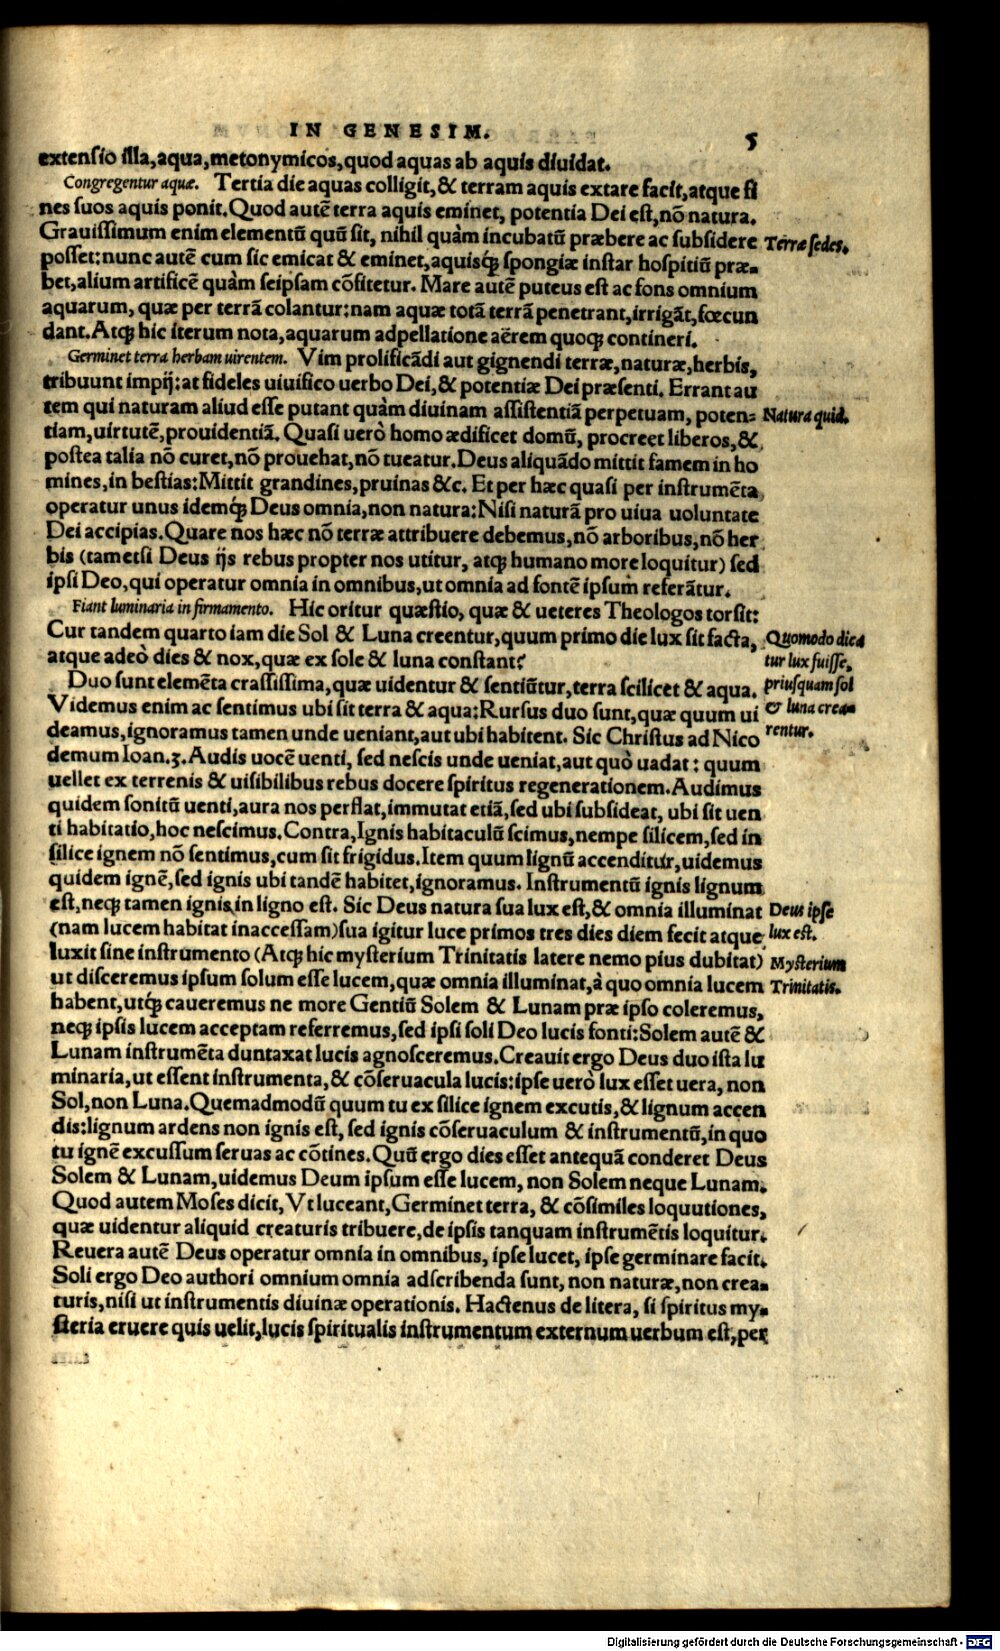 IN GENESIM. 5
extensio illa, aqua, metonymicos, quod aquas ab aquis diuidat.
Congregentur aquæ. Tertia die aquas colligit, & terram aquis extare facit, atque fi
nes suos aquis ponit. Quod autē terra aquis eminet, potentia Dei est, nō natura.
Grauissimum enim elementū quū sit, nihil quàm incubatū præbere ac subsidere
Terræ sedes.
posset: nunc autē cum sic emicat & eminet, aquisq́; spongiæ instar hospitiū præ-
bet, alium artificē quàm seipsam cōfitetur. Mare autē puteus est ac fons omnium
aquarum, quæ per terrā colantur: nam aquæ totā terrā penetrant, irrigāt, fœcun
dant. Atq; hic iterum nota, aquarum adpellatione aërem quoq; contineri.
Germinet terra herbam uirentem. Vim prolificādi aut gignendi terræ, naturæ, herbis,
tribuunt impij: at fideles uiuifico uerbo Dei, & potentiæ Dei præsenti. Errant au
tem qui naturam aliud esse putant quàm diuinam assistentiā perpetuam, poten-
Natura quid.
tiam, uirtutē, prouidentiā. Quasi uerò homo ædificet domū, procreet liberos, &
postea talia nō curet, nō prouehat, nō tueatur. Deus aliquādo mittit famem in ho
mines, in bestias: Mittit grandines, pruinas &c. Et per hæc quasi per instrumēta
operatur unus idemq́; Deus omnia, non natura: Nisi naturā pro uiua uoluntate
Dei accipias. Quare nos hæc nō terræ attribuere debemus, nō arboribus, nō her
bis (tametsi Deus ijs rebus propter nos utitur, atq; humano more loquitur) sed
ipsi Deo, qui operatur omnia in omnibus, ut omnia ad fontē ipsum referātur.
Fiant luminaria in firmamento. Hic oritur quæstio, quæ & ueteres Theologos torsit:
Cur tandem quarto iam die Sol & Luna creentur, quum primo die lux sit facta,
Quomodo dica
atque adeò dies & nox, quæ ex sole & luna constant?
tur lux fuisse,
Duo sunt elemēta crassissima, quæ uidentur & sentiūtur, terra scilicet & aqua.
priusquam sol
Videmus enim ac sentimus ubi sit terra & aqua: Rursus duo sunt, quæ quum ui
& luna crea-
deamus, ignoramus tamen unde ueniant, aut ubi habitent. Sic Christus ad Nico
rentur.
demum Ioan. 3. Audis uocē uenti, sed nescis unde ueniat, aut quò uadat: quum
uellet ex terrenis & uisibilibus rebus docere spiritus regenerationem. Audimus
quidem sonitū uenti, aura nos perflat, immutat etiā, sed ubi subsideat, ubi sit uen
ti habitatio, hoc nescimus. Contra, Ignis habitaculū scimus, nempe silicem, sed in
silice ignem nō sentimus, cum sit frigidus. Item quum lignū accenditur, uidemus
quidem ignē, sed ignis ubi tandē habitet, ignoramus. Instrumentū ignis lignum
est, neq; tamen ignis in ligno est. Sic Deus natura sua lux est, & omnia illuminat
Deus ipse
(nam lucem habitat inaccessam) sua igitur luce primos tres dies diem fecit atque
lux est.
luxit sine instrumento (Atq; hic mysterium Trinitatis latere nemo pius dubitat)
Mysterium
ut disceremus ipsum solum esse lucem, quæ omnia illuminat, à quo omnia lucem
Trinitatis.
habent, utq́; caueremus ne more Gentiū Solem & Lunam præ ipso coleremus,
neq; ipsis lucem acceptam referremus, sed ipsi soli Deo lucis fonti: Solem autē &
Lunam instrumēta duntaxat lucis agnosceremus. Creauit ergo Deus duo ista lu
minaria, ut essent instrumenta, & cōseruacula lucis: ipse uerò lux esset uera, non
Sol, non Luna. Quemadmodū quum tu ex silice ignem excutis, & lignum accen
dis: lignum ardens non ignis est, sed ignis cōseruaculum & instrumentū, in quo
tu ignē excussum seruas ac cōtines. Quū ergo dies esset antequā conderet Deus
Solem & Lunam, uidemus Deum ipsum esse lucem, non Solem neque Lunam.
Quod autem Moses dicit, Vt luceant, Germinet terra, & cōsimiles loquutiones,
quæ uidentur aliquid creaturis tribuere, de ipsis tanquam instrumētis loquitur.
Reuera autē Deus operatur omnia in omnibus, ipse lucet, ipse germinare facit.
Soli ergo Deo authori omnium omnia adscribenda sunt, non naturæ, non crea-
turis, nisi ut instrumentis diuinæ operationis. Hactenus de litera, si spiritus my-
steria eruere quis uelit, lucis spiritualis instrumentum externum uerbum est, per
Digitalisierung gefördert durch die Deutsche Forschungsgemeinschaft - DFG